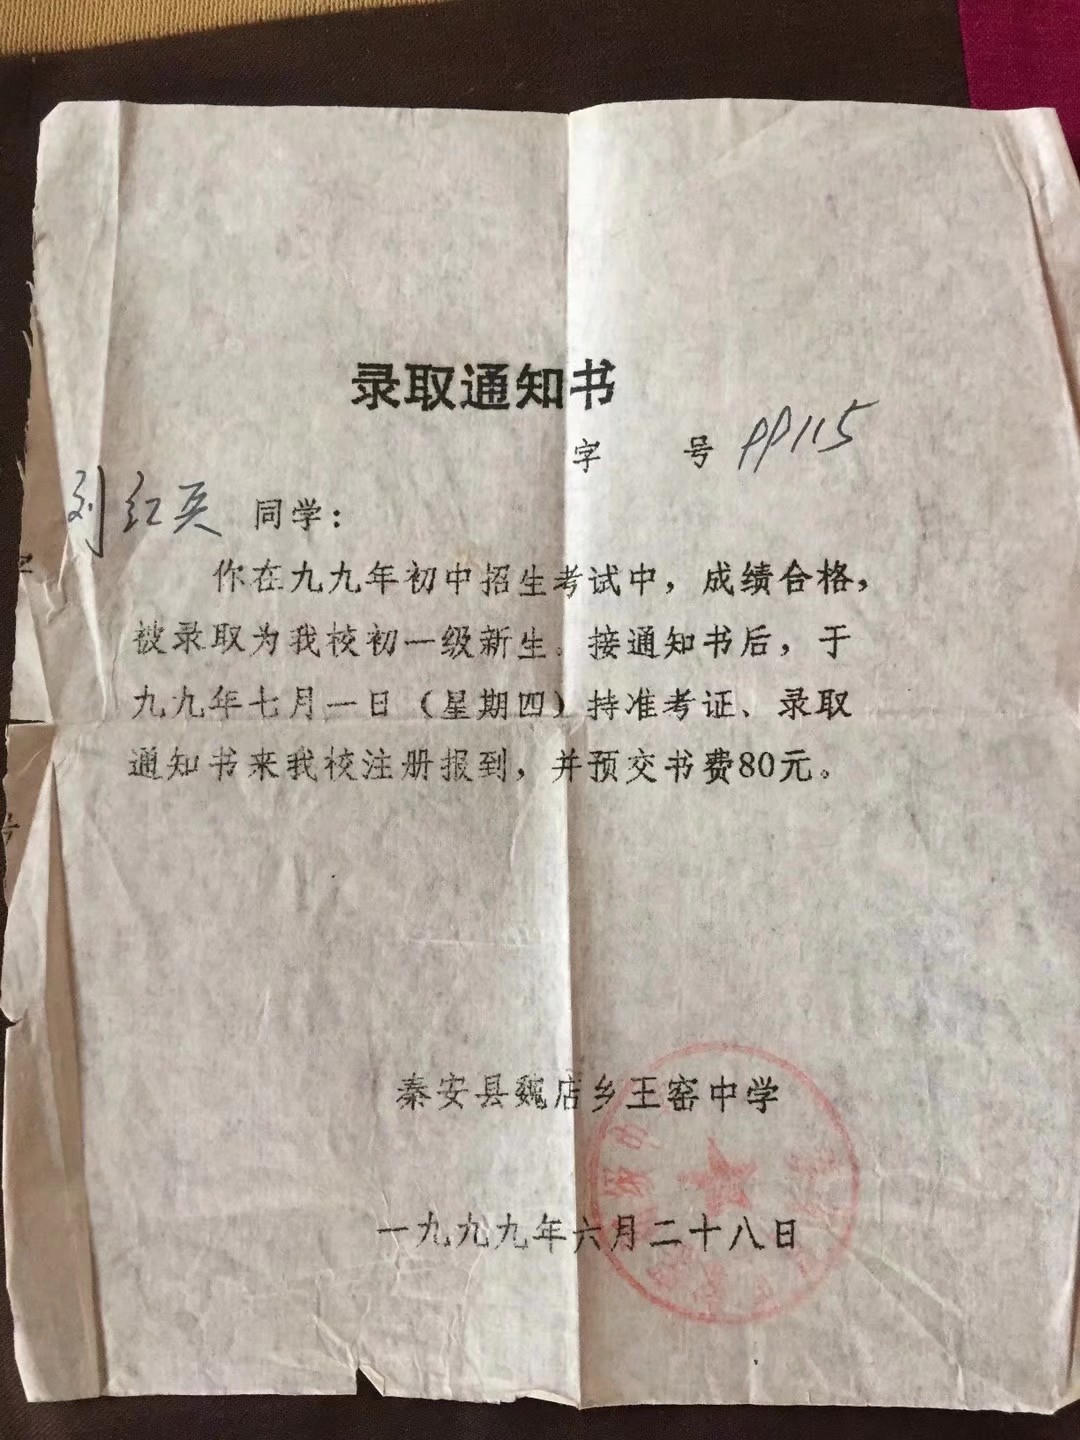 录取通知书
字 号 99115
刘红英 同学：
你在九九年初中招生考试中，成绩合格，
被录取为我校初一级新生。接通知书后，于
九九年七月一日（星期四）持准考证、录取
通知书来我校注册报到，并预交书费80元。
号
秦安县魏店乡王窑中学
一九九九年六月二十八日